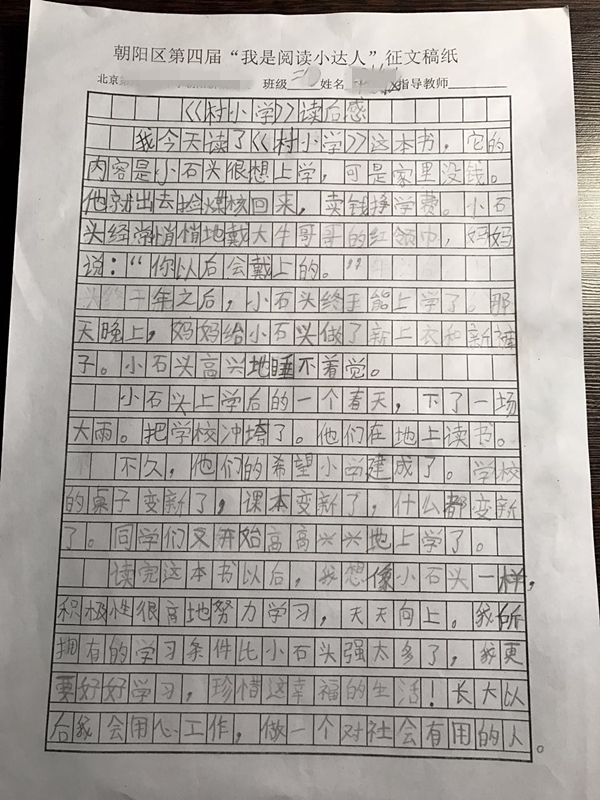 朝阳区第四届“我是阅读小达人”征文稿纸
北京 班级 姓名 指导教师
《村小学》读后感
我今天读了《村小学》这本书，它的
内容是小石头很想上学，可是家里没钱。
他就出去捡煤核回来，卖钱挣学费。小石
头经常悄悄地戴大牛哥哥的红领巾，妈妈
说：“你以后会戴上的。”
一年之后，小石头终于能上学了。那
天晚上，妈妈给小石头做了新上衣和新裤
子。小石头高兴地睡不着觉。
小石头上学后的一个春天，下了一场
大雨。把学校冲垮了。他们在地上读书。
不久，他们的希望小学建成了。学校
的桌子变新了，课本变新了，什么都变新
了。同学们又开始高高兴兴地上学了。
读完这本书以后，我想像小石头一样，
积极性很高地努力学习，天天向上。我所
拥有的学习条件比小石头强太多了，我更
要好好学习，珍惜这幸福的生活！长大以
后我会用心工作，做一个对社会有用的人。